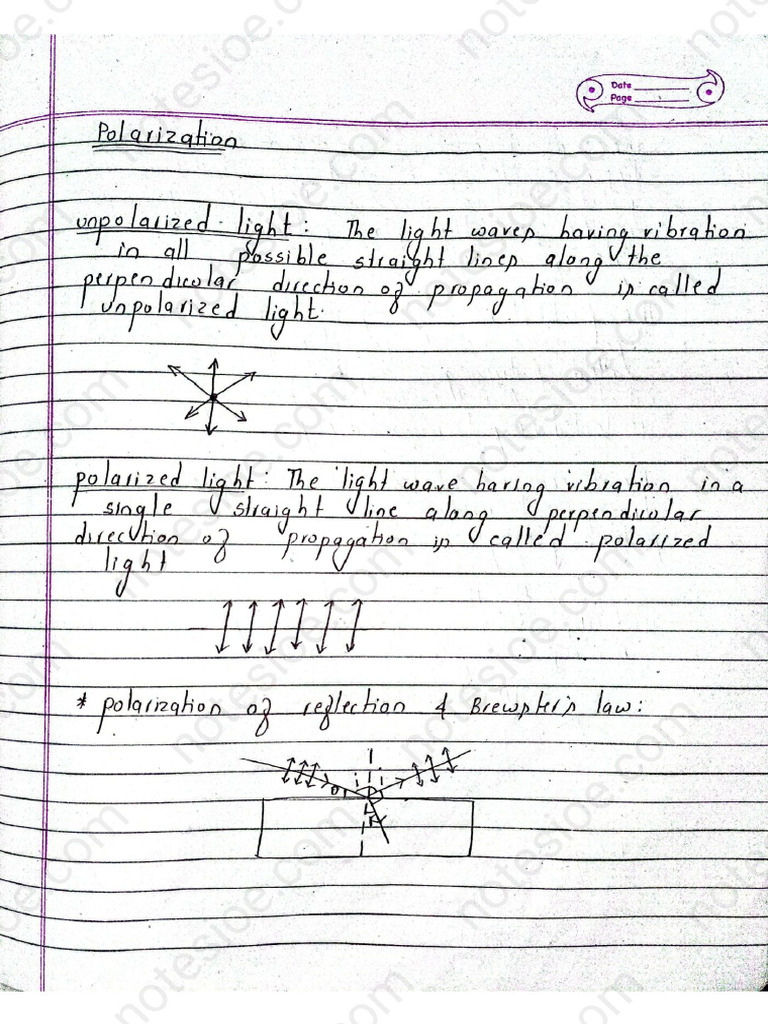 Date
Page
Polarization
unpolarized light: The light waves having vibration
in all possible straight lines along the
perpendicular direction of propagation is called
unpolarized light.
polarized light: The light wave having vibration in a
single straight line along perpendicular
direction of propagation is called polarized
light
* polarization of reflection & Brewster's law:
i i
r
notesioe.com